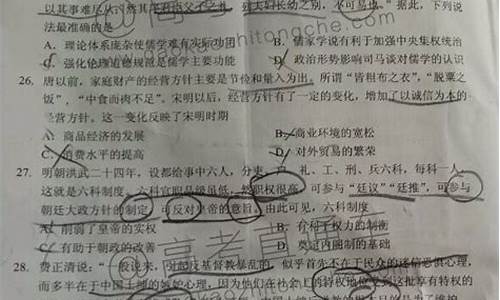 以其事难尽从
夫妇长幼之别,不可易也。”据此,下列说
法最准确的是
A. 理论体系庞杂使儒学难有实际功用
B. 儒家学说有利于加强中央集权统治
强化伦理道德规范是儒学主要功能
D. 政治形势影响司马谈对儒学的认识
26. 唐以前,家庭财产的经营方针主要是节俭和量入为出。所谓“皆粗布之衣”,“脱粟之
饭”,“中食而肉不足”。宋明以后,经营方针有了一定的变化,增加了以诚信为本的
经营方针。这一变化反映了宋明时期
A. 商品经济的发展
B. 商业环境的宽松
C. 消费水平的提高
D. 对外贸易的繁荣
27. 明朝洪武二十四年,设都给事中六人,分吏、户、礼、工、刑、兵六科,每科一人,
这就是六科制度。六科官职品级虽低,然职权很高,可参与“廷议”“廷推”,可参与
朝廷大政方针的制定,可反对皇帝的意旨。由此可见,六科制度
A. 削弱了皇帝的实权
B. 有利于权力的制衡
C. 有助于朝政的改善
D. 奠定内阁制的基础
28. 费正清说:“一般说来,对起反基督教暴乱的,似乎首先不在于民众的迷信恐惧心理,
而多半在于中国士绅的嫉妒心理,因为他们在社会上的特权地位受到这批享有特权的